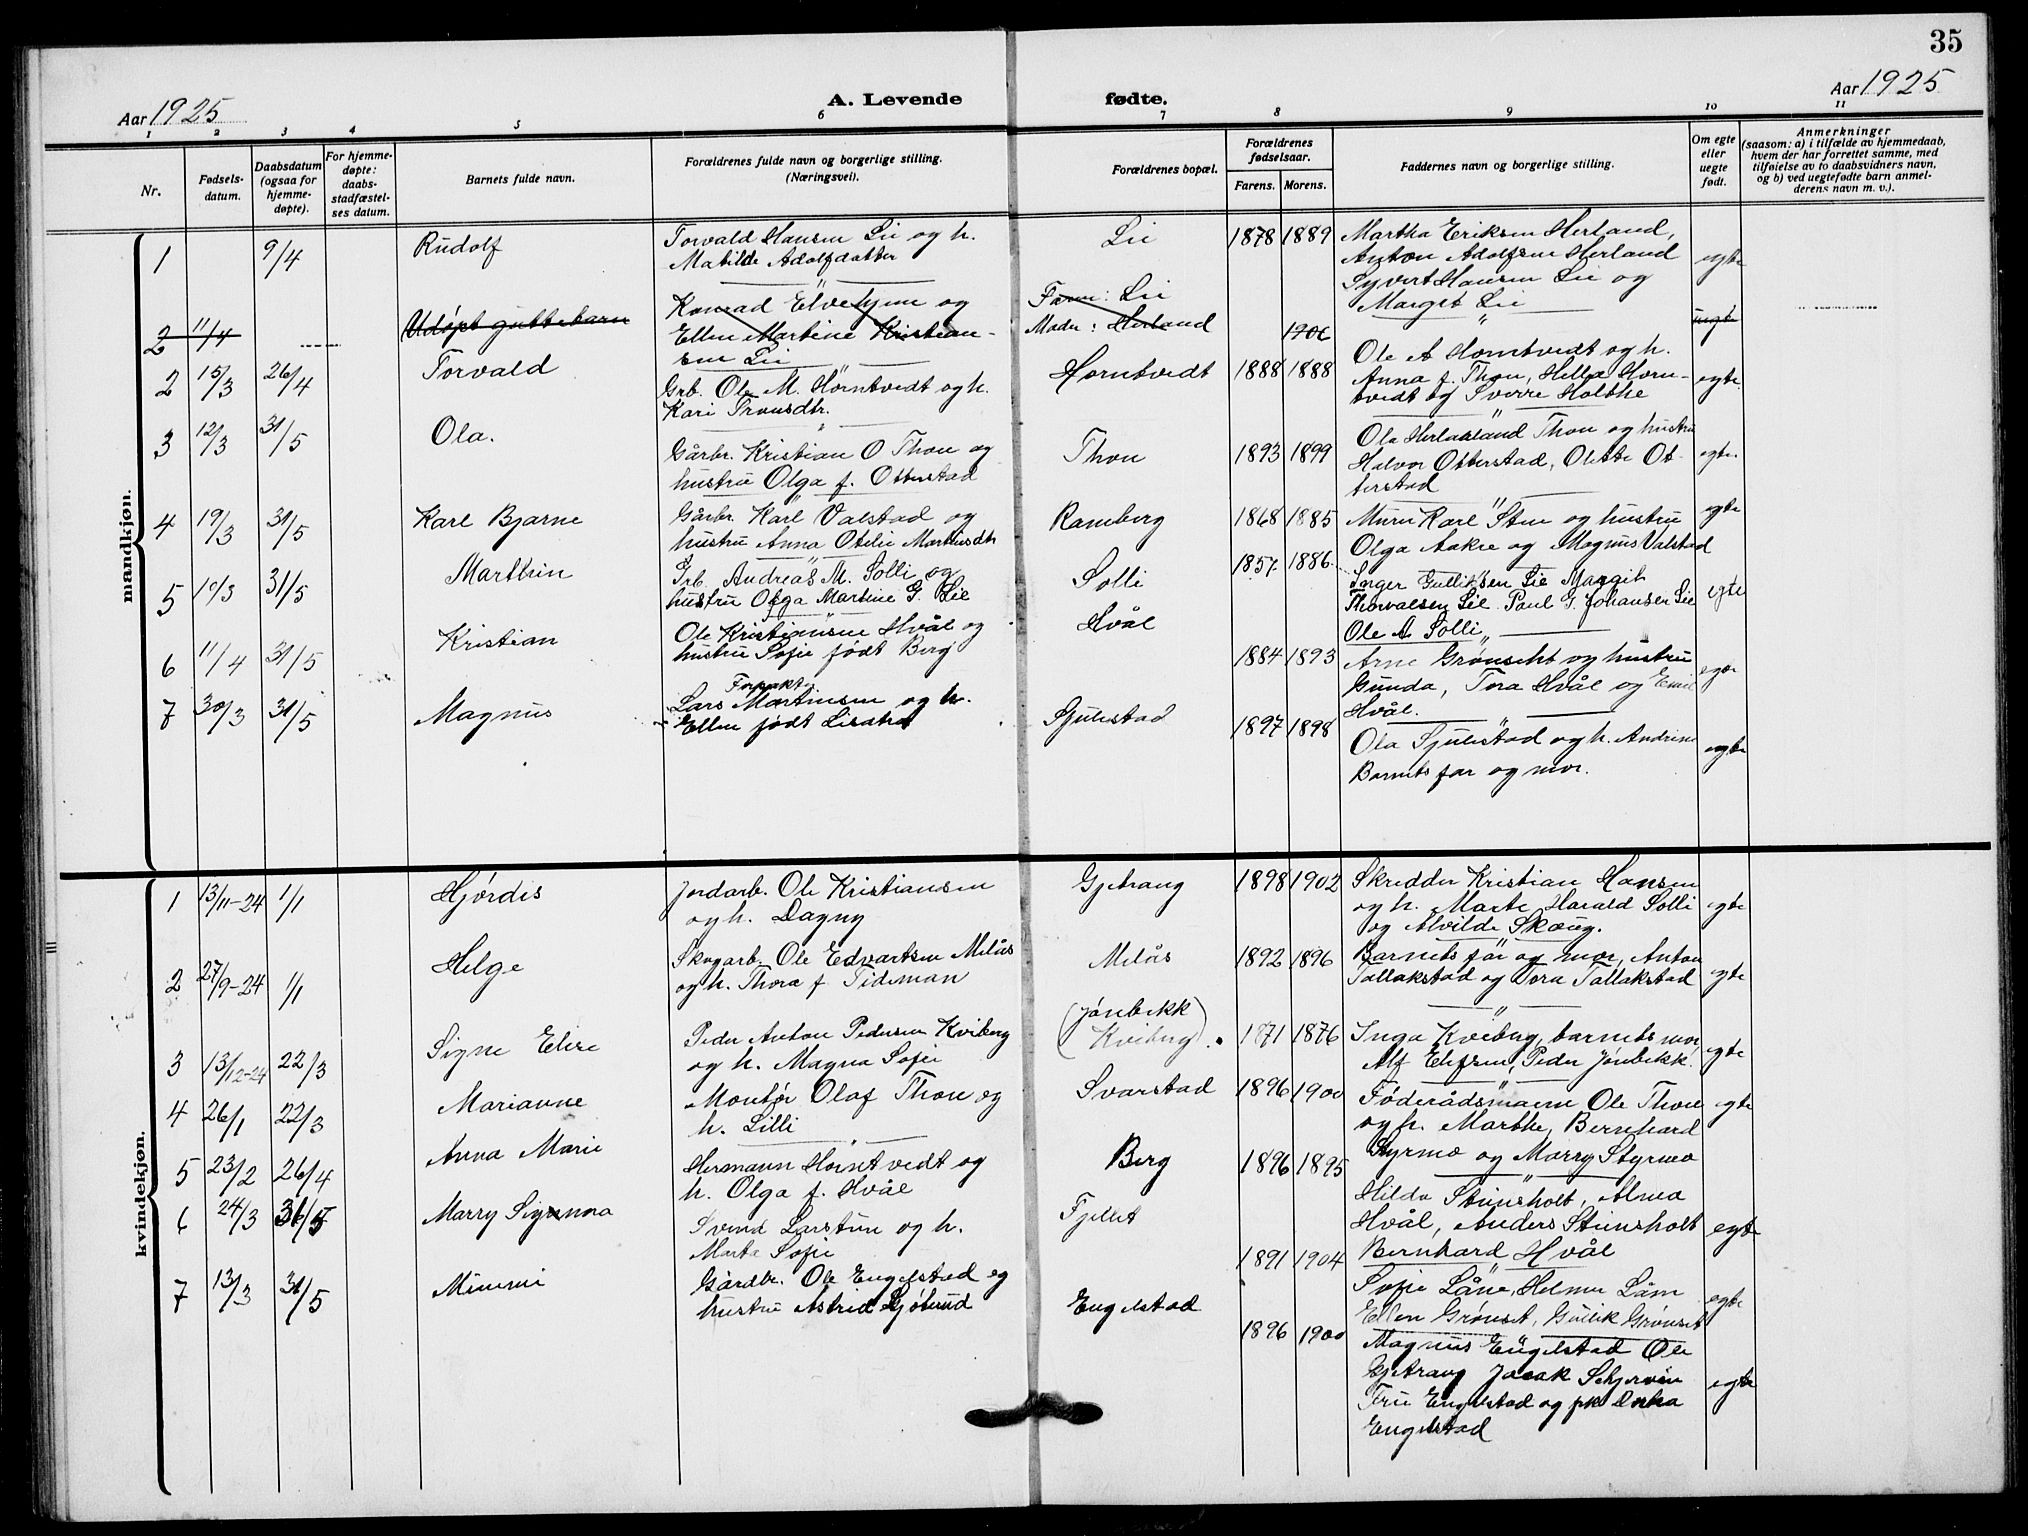 35
Aar 1925 A. Levende fødte. Aar 1925
1 2 3 4 5 6 7 8 9 10 11
Nr.
Fødsels-
datum.
Daabsdatum
(ogsaa for
hjemme-
døpte).
For hjemme-
døpte:
daabs-
stadfæstel-
ses datum.
Barnets fulde navn.
Forældrenes fulde navn og borgerlige stilling.
(Næringsvei).
Forældrenes bopæl.
Forældrenes
fødselsaar.
Farens. Morens.
Faddernes navn og borgerlige stilling.
Om egte
eller
uegte
født.
Anmerkninger
(saasom: a) i tilfælde av hjemmedaab,
hvem der har forrettet samme, med
tilføielse av to daabsvidners navn,
og b) ved uegtefødte barn anmel-
derens navn m. v.).
mandkjøn.
1 9/4 Rudolf Torvald Hansen Lie og h. Lie 1878 1889 Martha Eriksen Herland,
Matilde Adolfdatter Anton Adolfsen Herland egte
Syvert Hansen Lie og
Marget Lie
2 11/4 Udøpt guttebarn Konrad og Faren: Lie
Ellen Martine Kristian- Moder: Herland 1906 uegte
sen Lie
2 15/3 26/4 Torvald Grb. Ole M. Horntvedt og h. Horntvedt 1888 1888 Ole A Horntvedt og h.
Kari Tronsdtr. Anna f. Thon, Hella Horn- egte
tvedt og Sverre Holthe
3 12/3 31/5 Ola. Gårbr. Kristian O Thon og Thon 1893 1899 Ola Thon og hustru
hustru Olga f. Otterstad Halvor Otterstad, Olette Ot- egte.
terstad
4 19/3 31/5 Karl Bjarne Gårbr. Karl Valstad og Ramberg 1868 1885 Murer Karl Sten og hustru egte
hustru Anna Otelie Martinsdtr Olga Aakre og Magnus Valstad
5 19/3 31/5 Marthin Grb. Andreas M. Solli og Solli 1857. 1886. Inger Gulliksen Lie Margit
hustru Olga Martine G. Lie Thorvalsen Lie. Paul G. Johansen Lie egte
Ole A. Solli
6 11/4 31/5 Kristian Ole Kristiansen Hvål og Hvål 1884 1893 Arne og hustru
hustru Sofie født Berg Gunda, Tora Hvål og Emil
Hvål.
7 30/3 31/5 Magnus Lars Martinsen og h. Sjulestad 1897 1898 Ola Sjulestad og h. Andrine
Ellen født Barnets far og mor. egte
kvindekjøn.
1 13/11-24 1/1 Hjørdis Jordarb. Ole Kristiansen Gjetrang 1898 1902 Skredder Kristian Hansen
og h. Dagny og h. Marte Harald Solli egte
og Alvilde Skaug.
2 27/9-24 1/1 Helge Skogarb. Ole Edvartsen Milås Milås 1892 1896 Barnets far og mor, Anton
og h. Thora f Tideman Tallakstad og Tora Tallakstad egte
3 13/12-24 22/3 Signe Elise Peder Anton Pedersen Kviberg (Jónbekk Kviberg) 1871 1876 Inga Kviberg, barnets mor,
og h. Magna Sofie Alf Elefsen, Peder Jónbekk. egte
4 26/1 22/3 Marianne Montør Olaf Thon og Svarstad 1896 1900 Føderådsmann Ole Thon egte
h. Lilli og h. Marthe, Bernhard
Styrmo og Marry Styrmo
5 23/2 26/4 Anna Marie Hermann Horntvedt og Berg 1896 1895 Hilda Stensholt, Alma
h. Olga f. Hvål Hvål, Anders Stensholt egte
Bernhard Hvål
6 24/3 31/5 Marry Svend Larsen og h. Fjellet 1891 1904 Sofie Låne, Helmer Låne
Marte Sofie Ellen Grønset, Gullik Grønset egte
7 13/3 31/5 Mimmi Gårdbr. Ole Engelstad og Engelstad 1896 1900 Magnus Engelstad Ole
hustru Astrid Sjøbrud Gjetrang Jacob egte
Fru Engelstad og frk
Engelstad